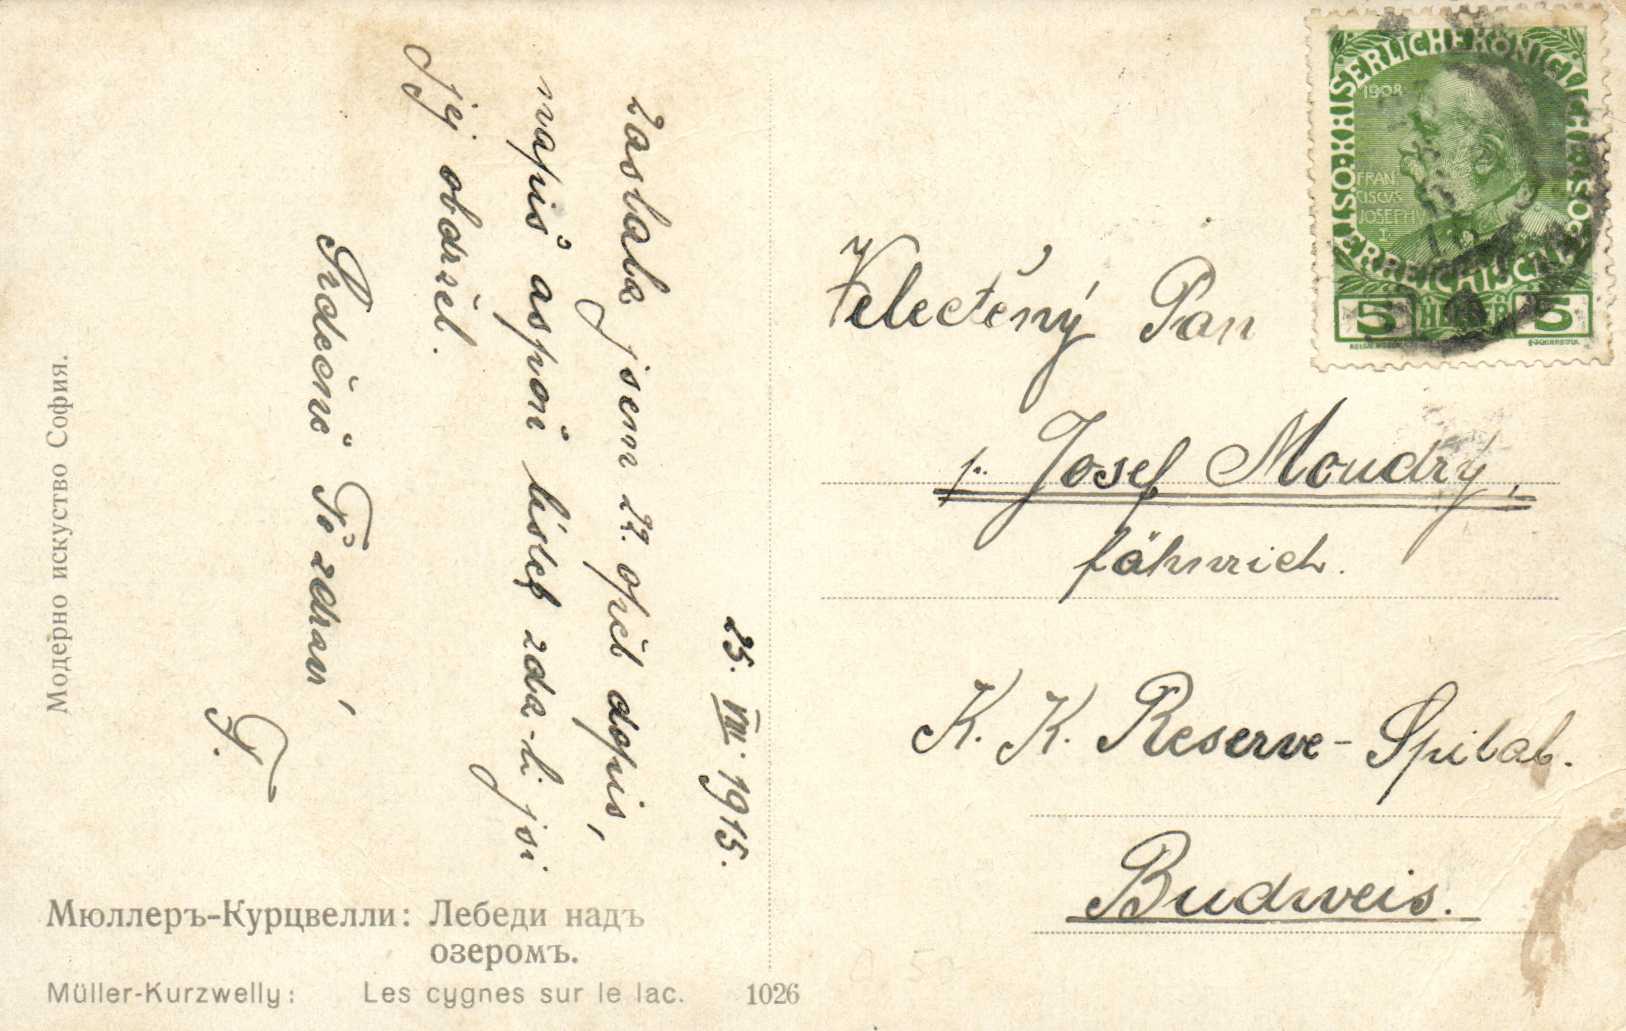 25. VIII. 1915.
Zaslala jsem 22. opět dopis,
napiš aspoň lístek zda-li jsi
jej obdržel.
Srdečně Tě zdraví,
F.
Velectěný Pan
p. Josef Moudrý,
fähnrich.
K. K. Reserve-Spital.
Budweis.
KAISERLICHE KÖNIGLICHE
ÖSTERREICHISCHE
1908
FRAN
CISCVS
JOSEPHV
I.
5 HELLER 5
Модерно искуство София.
Мюллеръ-Курцвелли: Лебеди надъ
озеромъ.
Müller-Kurzwelly: Les cygnes sur le lac. 1026
0.50